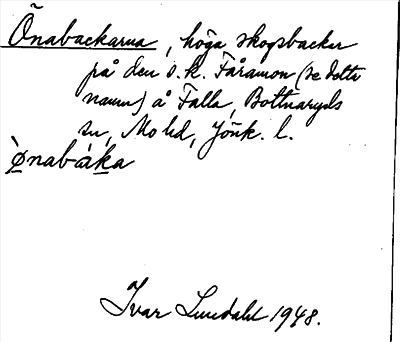 Õnabackarna, höga skogsbackar
på den s.k. Fåramon (se detta
namn) å Falla, Bottnaryds
sn, Mo hd, Jönk. l.
ø̀nabàka
Ivar Lundahl 1948.